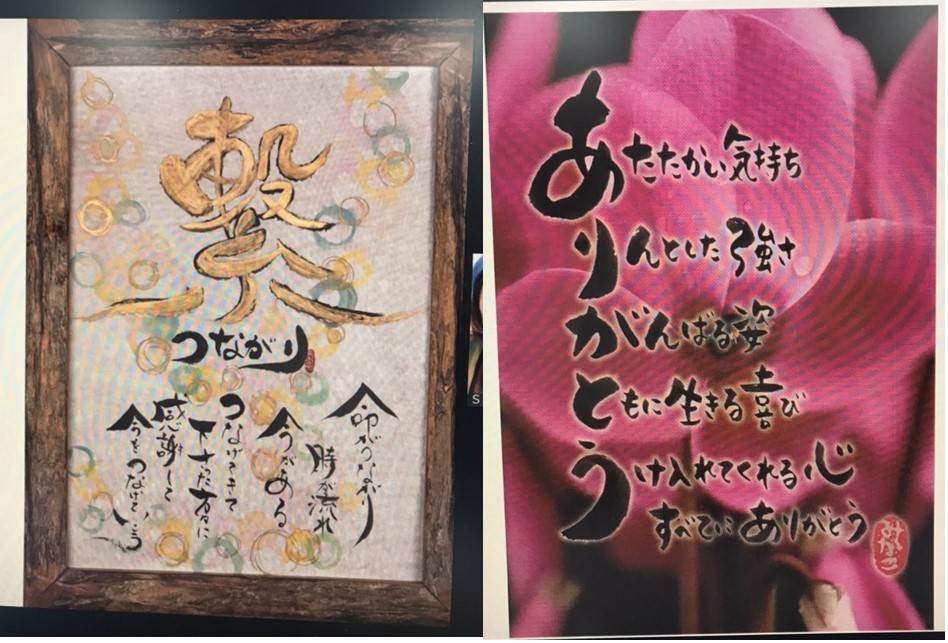 繋
つながり
命がつながり
時が流れ
今がある
つなげてきて
下さった方々に
感謝して
今をつなげていこう
あたたかい気持ち
りんとした強さ
がんばる姿
ともに生きる喜び
うけ入れてくれる心
すべてにありがとう